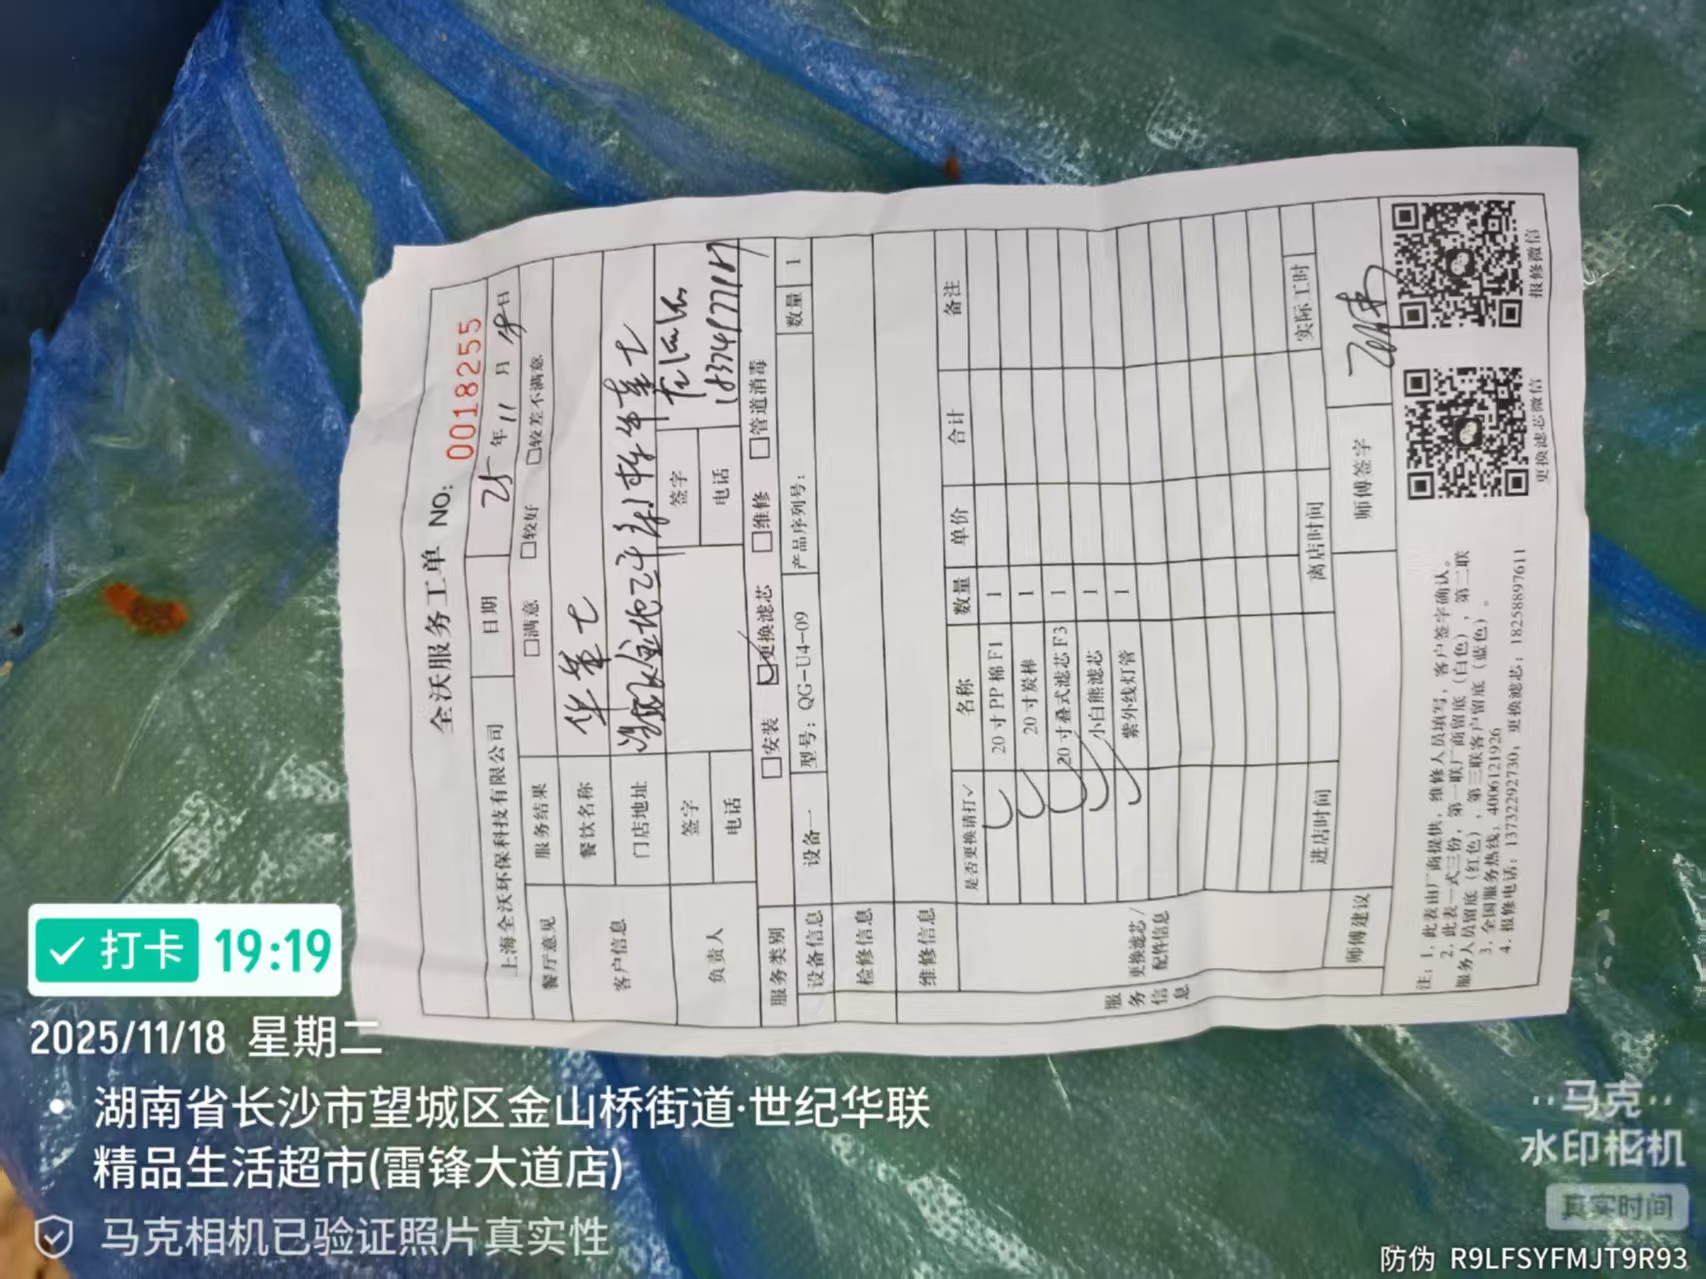 全沃服务工单 NO: 00182555
上海全沃环保科技有限公司 日期 25年11月18日
餐厅意见 服务结果 □满意 □较好 □较差不满意
客户信息 餐饮名称 华莱士
门店地址 华莱士
负责人 签字 签字
电话 电话
服务类别 □安装 ☑更换滤芯 □维修 □管道消毒
设备信息 设备一 型号：QG-U4-09 产品序列号： 数量 1
检修信息
维修信息
服务信息 更换滤芯/配件信息
是否更换请打✓ 名称 数量 单价 合计 备注
✓ 20寸PP棉F1 1
✓ 20寸炭棒 1
✓ 20寸叠式滤芯F3 1
✓ 小白熊滤芯 1
✓ 紫外线灯管 1
进店时间 离店时间 实际工时
师傅建议 师傅签字
注：1，此表由厂商提供，维修人员填写，客户签字确认。
2，此表一式三份，第一联厂商留底（白色），第二联
服务人员留底（红色），第三联客户留底（蓝色）。
3，全国服务热线：4006121926
4，报修电话：13732292730；更换滤芯：18258897611
更换滤芯微信
报修微信
打卡 19:19
2025/11/18 星期二
湖南省长沙市望城区金山桥街道·世纪华联
精品生活超市(雷锋大道店)
马克相机已验证照片真实性
马克
水印相机
真实时间
防伪 R9LFSYFMJT9R93